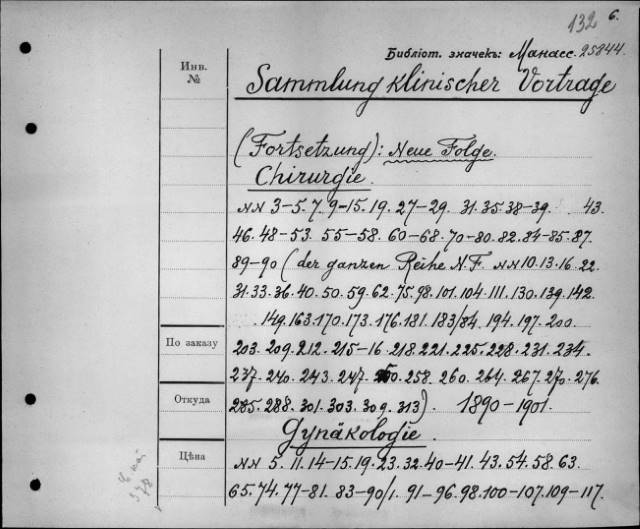 132 6.
Библіот. значекъ: Манасс. 25844.
Инв.
№
Sammlung klinischer Vorträge
(Fortsetzung): Neue Folge.
Chirurgie.
NN 3-5. 7. 9-15. 19. 27-29. 31. 35. 38-39. 43.
46. 48-53. 55-58. 60-68. 70-80. 82. 84-85. 87.
89-90 (der ganzen Reihe N.F. NN 10. 13. 16. 22.
31. 33. 36. 40. 50. 59. 62. 75. 98. 101. 104. 111. 130. 139. 142.
149. 163. 170. 173. 176. 181. 183/84. 194. 197. 200.
По заказу
203. 209. 212. 215-16. 218. 221. 225. 228. 231. 234.
237. 240. 243. 247. 250. 258. 260. 264. 267. 270. 276.
Откуда
285. 288. 301. 303. 309. 313) 1890-1901.
Gynäkologie.
Цѣна
NN 5. 11. 14-15. 19. 23. 32. 40-41. 43. 54. 58. 63.
65. 74. 77-81. 83-90/1. 91-96. 98. 100-107. 109-117.